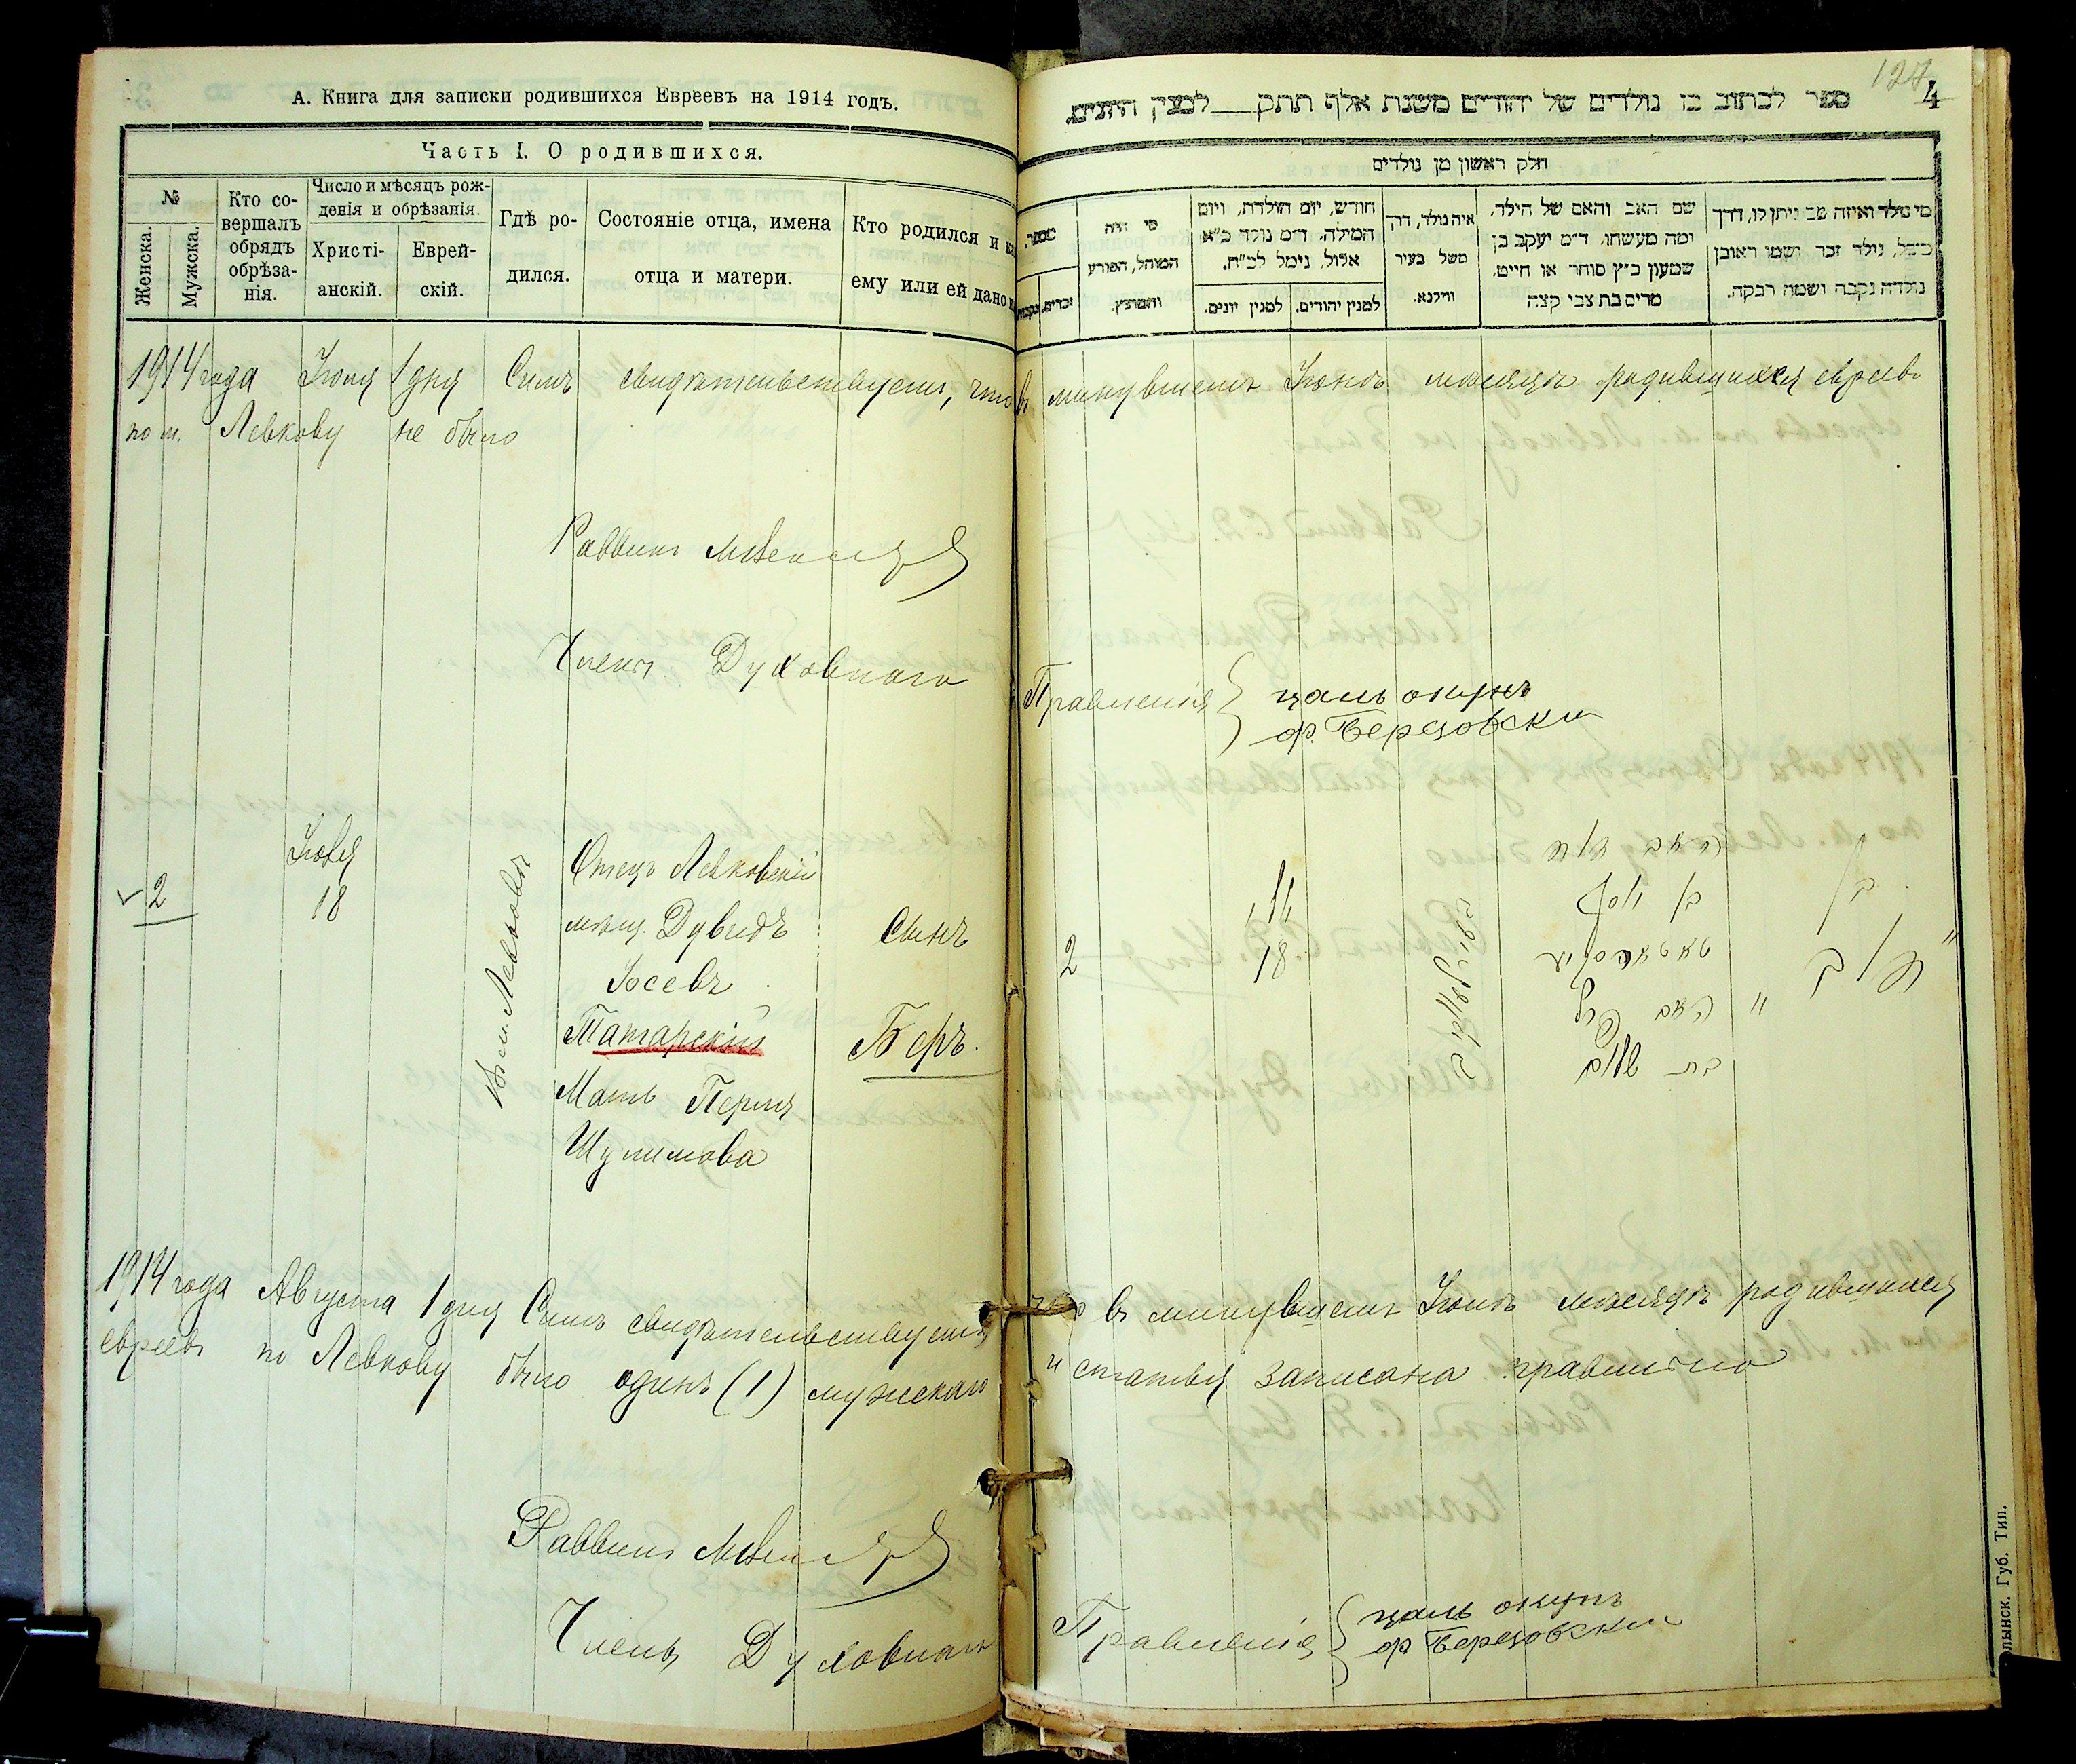 А. Книга для записки родившихся Евреевъ на 1914 годъ.
Часть I. О родившихся.
№
Женска.
Мужска.
Кто со-
вершалъ
обрядъ
обрѣза-
нія.
Число и мѣсяцъ рож-
денія и обрѣзанія
Христі-
анскій.
Еврей-
скій.
Гдѣ ро-
дился.
Состояніе отца, имена
отца и матери.
Кто родился и
ему или ей дано
1914 года Іюля 1 дня Симъ свидѣтельствуемъ, что
по м. Левкову не было
Раввинъ
Члены Духовнаго
2
Іюля
18
Въ м. Левковѣ
Отецъ Левковскій
мѣщ. Дувидъ
Іосевъ
Татарскій
Мать Перля
Шулимова
Сынъ
Беръ.
1914 года Августа 1 дня Симъ свидѣтельствуемъ,
евреевъ по Левкову было одинъ (1) мужскаго
Раввинъ
Члены Духовнаго
127
4
ספר לכתוב בו נולדים של יהודים משנת אלף תתק למנין היונים
חלק ראשון מן נולדים
מספר.
זכרים.
מי היה
המוהל, הפורע
והמוצץ.
חודש, יום הולדת, ויום
המילה, ד״מ נולד כ״א
אלול, נימל לכ״ח.
למנין יונים.
למנין יהודים.
איה נולד, דרך
משל בעיר
ווילנא.
שם האב והאם של הילד,
ומה מעשהו, ד״מ יעקב בן
שמעון כ״ץ סוחר או חייט.
מרים בת צבי קצה
מי נולד ואיזה שם ניתן לו, דרך
משל, נולד זכר ושמו ראובן
נולדה נקבה ושמה רבקה.
въ минувшемъ Іюнѣ мѣсяцѣ родившихся евреевъ
Правленія
цаль окунь
Березовски
2
18
האב דוד
בן יוסף
טאטארסקיי
האם פערל
בת שלום
בן
בער
въ минувшемъ Іюлѣ мѣсяцѣ родившихся
и статья записана правильно
Правленія
цаль окунь
Березовски
Губ. Тип.